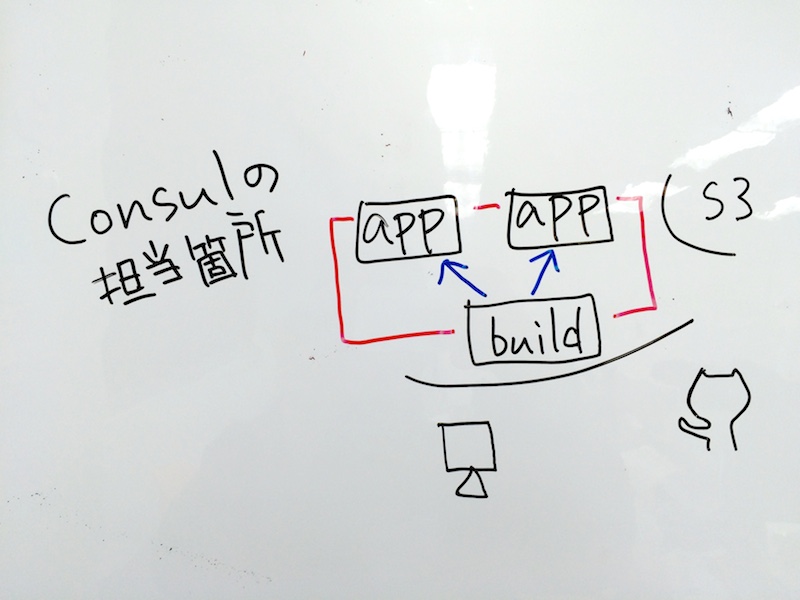 Consulの
担当箇所
app
app
S3
build